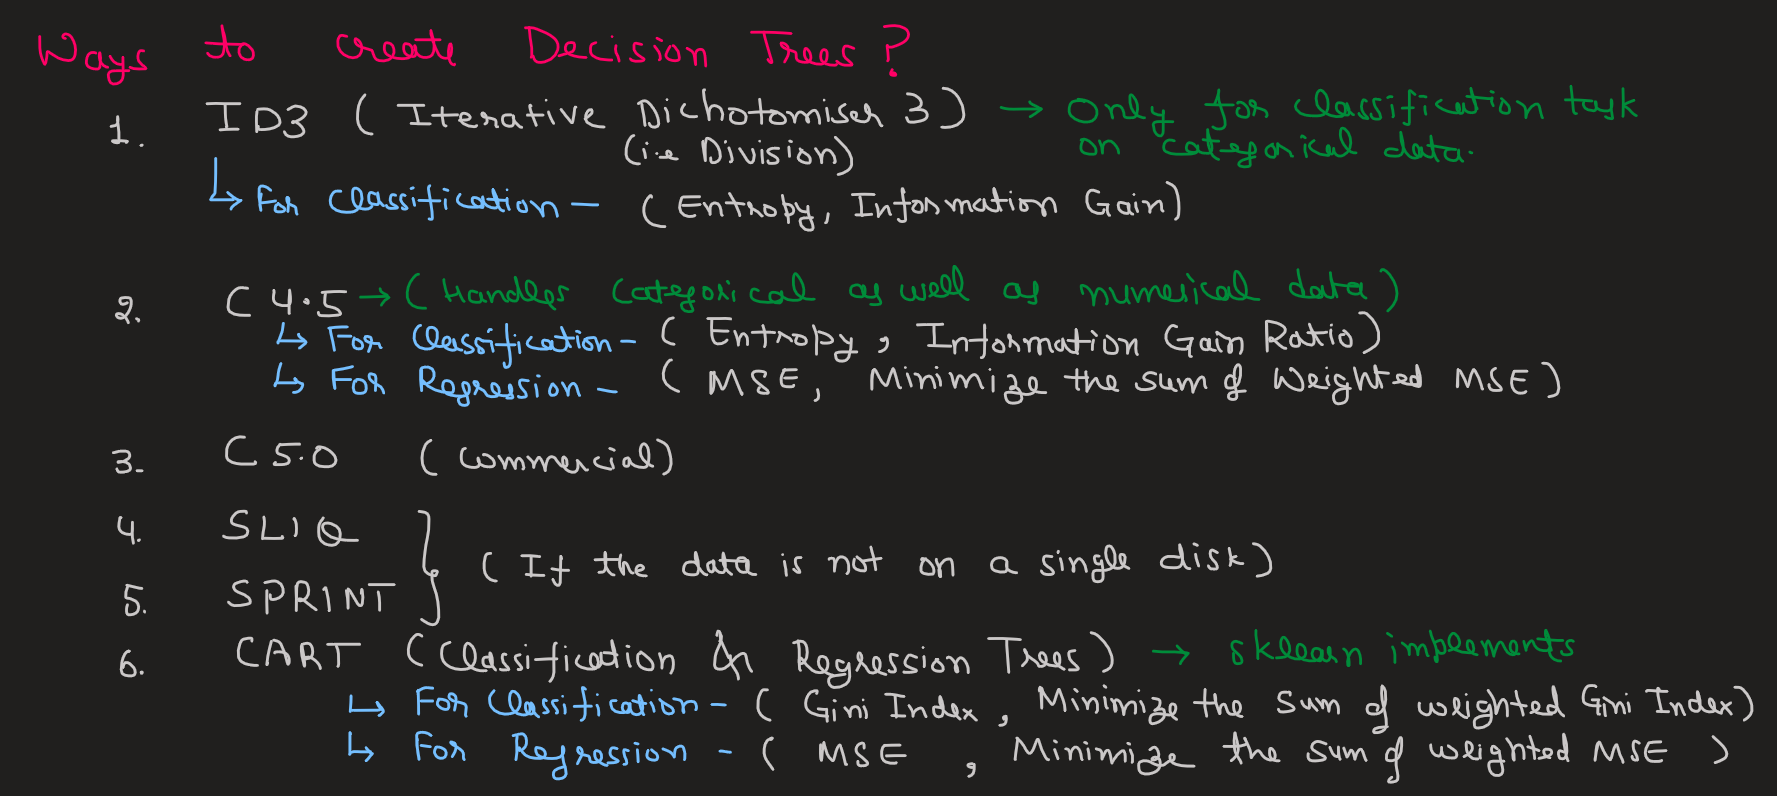 Ways to create Decision Trees?
1. ID3 (Iterative Dichotomiser 3) → Only for classification task
(i.e Division) on categorical data.
↳ For classification – (Entropy, Information Gain)
2. C 4.5 → (Handles categorical as well as numerical data)
↳ For Classification – (Entropy, Information Gain Ratio)
↳ For Regression – (MSE, Minimize the sum of Weighted MSE)
3. C 5.0 (Commercial)
4. SLIQ
(If the data is not on a single disk)
5. SPRINT
6. CART (Classification & Regression Trees) → sklearn implements
↳ For Classification – (Gini Index, Minimize the sum of weighted Gini Index)
↳ For Regression – (MSE, Minimize the sum of weighted MSE)